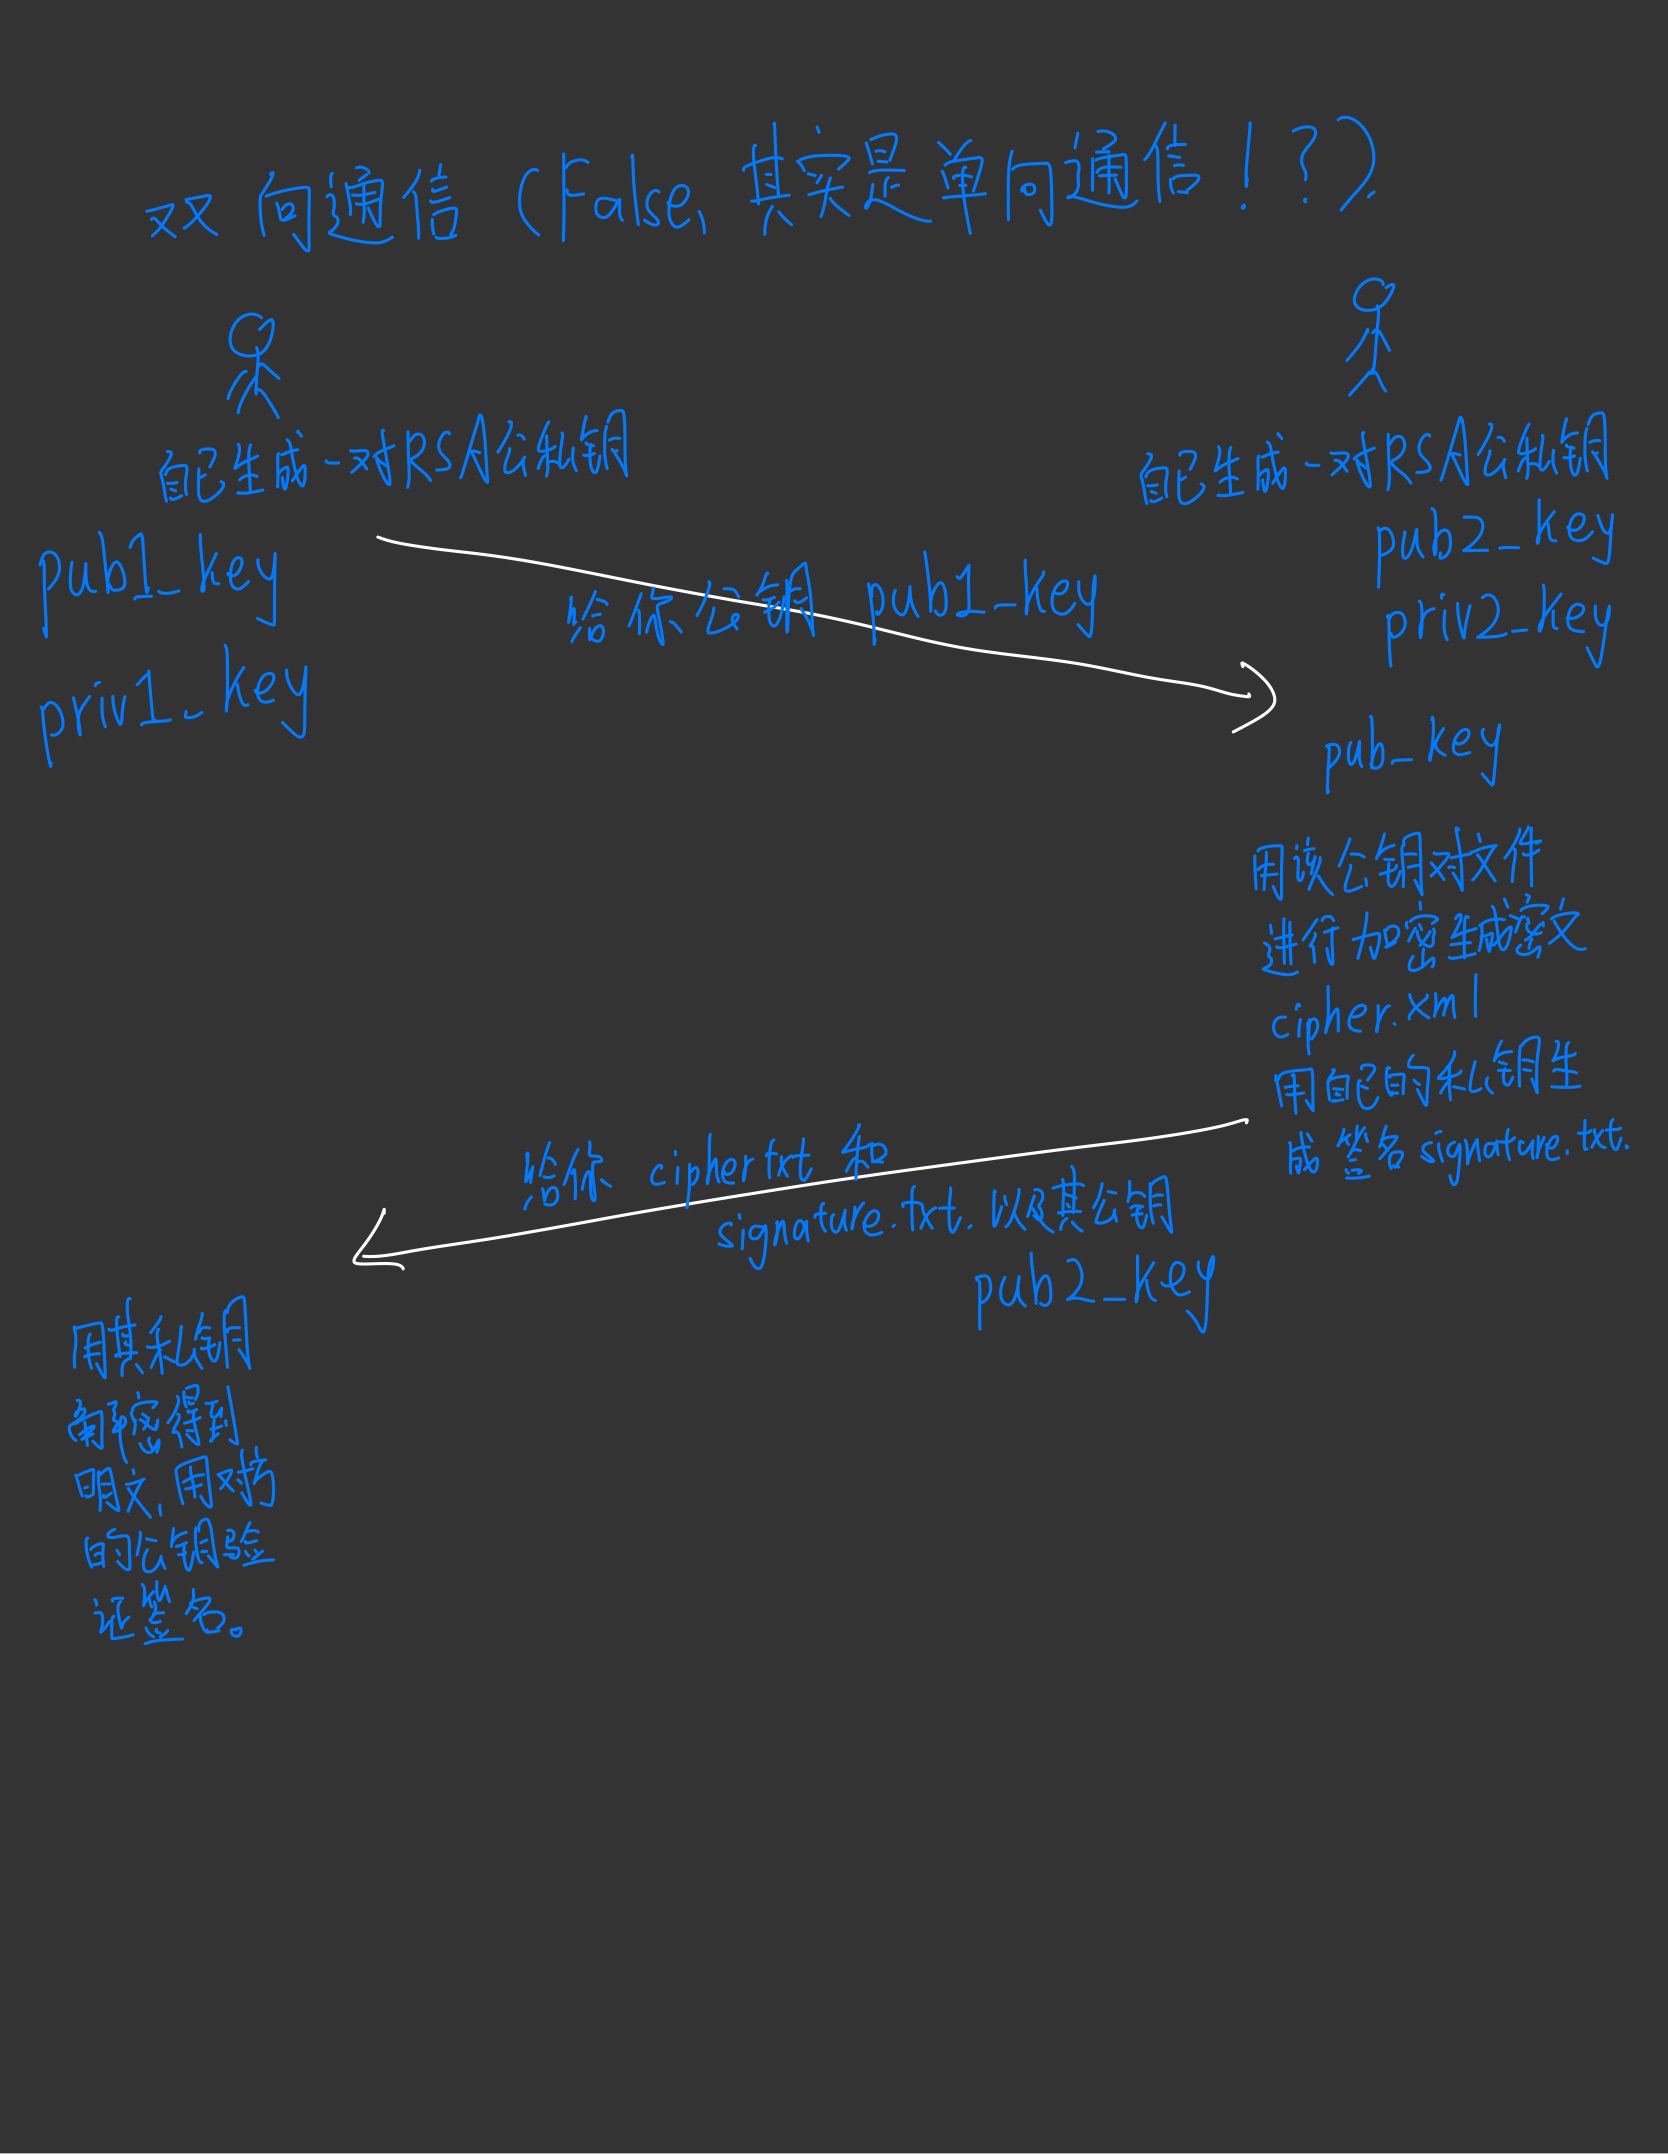 双向通信（False、其实是单向通信！？）
自己生成一对RSA公私钥
pub1_key
priv1_key
给你公钥 pub1_key
自己生成一对RSA公私钥
pub2_key
priv2_key
pub_key
用该公钥对文件
进行加密生成密文
cipher.xml
用自己的私钥生
成签名signature.txt.
给你 cipher txt 和
signature.txt. 以及其公钥
pub2_key
用其私钥
解密得到
明文、用对方
的公钥验
证签名。